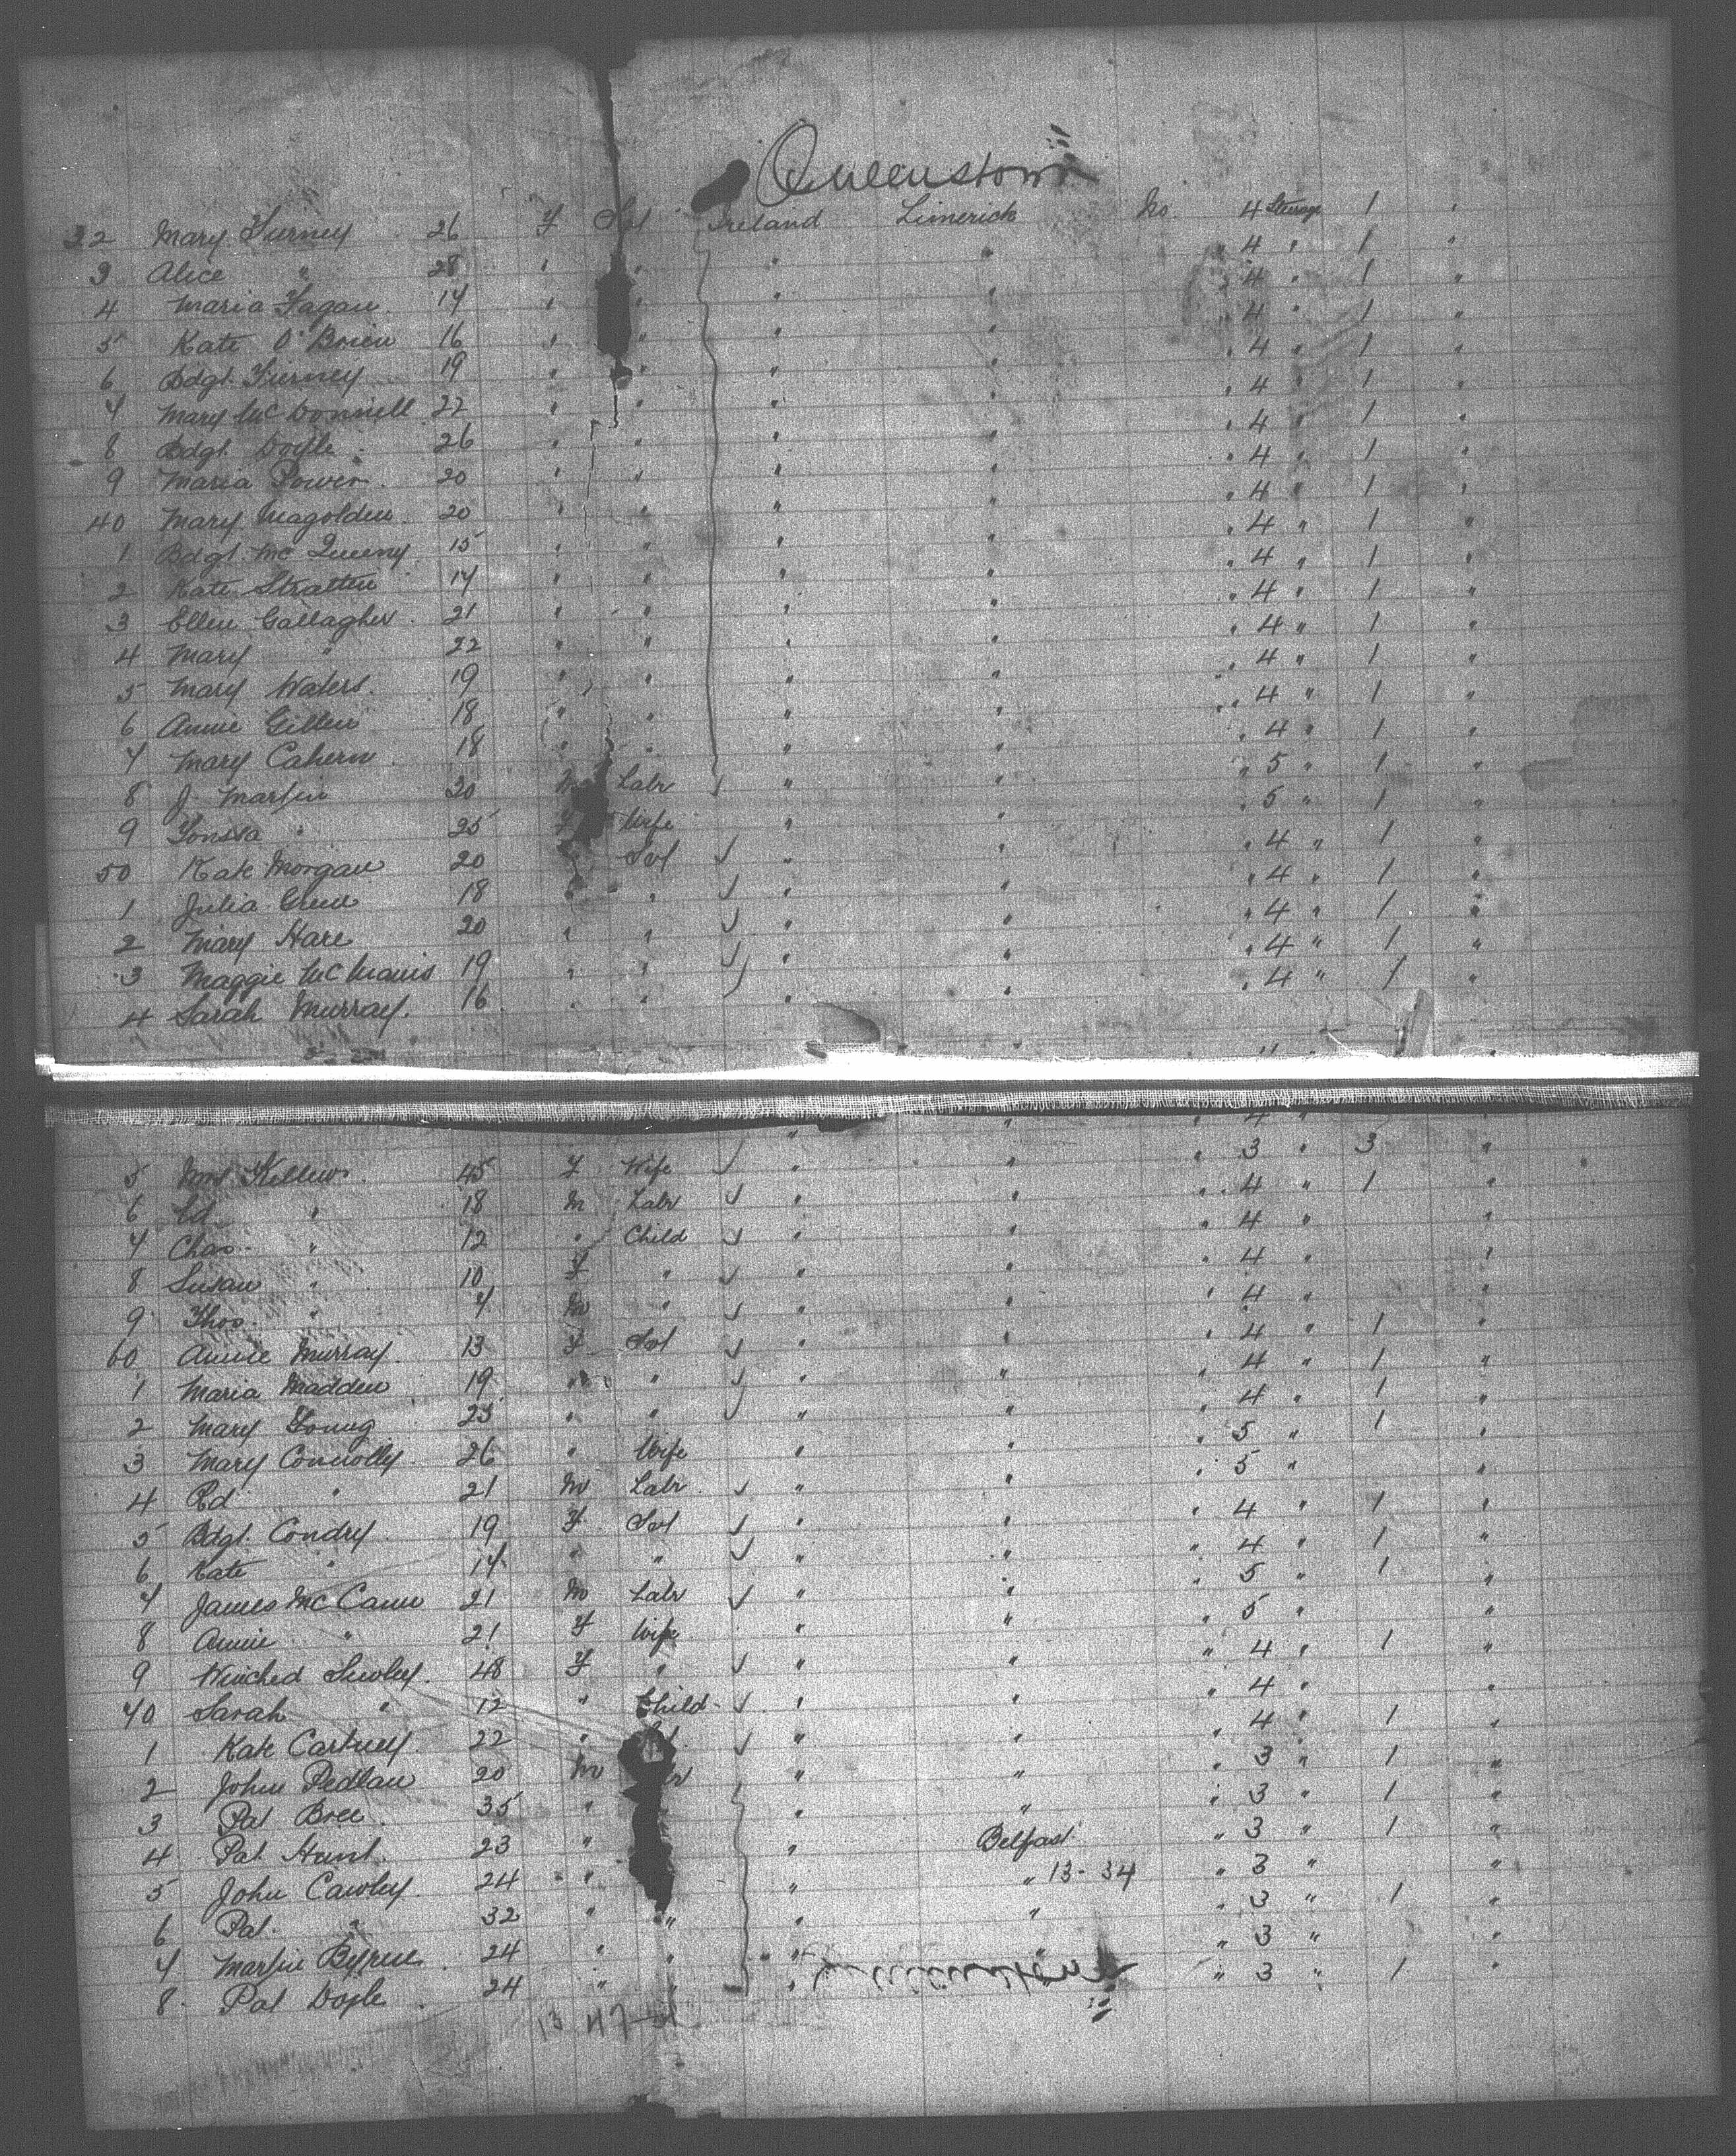 Queenstown
32 Mary Tierney 26 F Svt Ireland Limerick No. 4 Steerage 1 "
3 Alice " 28 " " " " " 4 " 1 "
4 Maria Fagan 17 " " " " " 4 " 1 "
5 Kate O'Brien 16 " " " " " 4 " 1 "
6 Bdgt. Tierney 19 " " " " " 4 " 1 "
7 Mary McDonnell 22 " " " " " 4 " 1 "
8 Bdgt. Doyle 26 " " " " " 4 " 1 "
9 Maria Power 20 " " " " " 4 " 1 "
40 Mary Magolden 20 " " " " " 4 " 1 "
1 Bdgt. McQueeny 15 " " " " " 4 " 1 "
2 Kate Stratten 17 " " " " " 4 " 1 "
3 Ellen Gallagher 21 " " " " " 4 " 1 "
4 Mary " 22 " " " " " 4 " 1 "
5 Mary Waters 19 " " " " " 4 " 1 "
6 Annie Gillen 18 " " " " " 4 " 1 "
7 Mary Cahern 18 " " " " " 4 " 1 "
8 J. Martin 30 M Labr " " " 5 " 1 "
9 25 F Wife " " " 5 " 1 "
50 Kate Morgan 20 " Svt " " " 4 " 1 "
1 Julia 18 " " " " " 4 " 1 "
2 Mary Hare 20 " " " " " 4 " 1 "
3 Maggie McManis 19 " " " " " 4 " 1 "
4 Sarah Murray 16 " " " " " 4 " 1 "
5 Mrs Killen 45 F Wife " " " 3 " 3 "
6 Ed " 18 M Labr " " " 4 " 1 "
7 Chas. " 12 " Child " " " 4 " "
8 Susan " 10 F " " " " 4 " "
9 Thos. " 7 M " " " " 4 " "
60 Annie Murray 13 F Svt " " " 4 " 1 "
1 Maria Madden 19 " " " " " 4 " 1 "
2 Mary Young 25 " " " " " 4 " 1 "
3 Mary Connolly 26 " Wife " " " 5 " 1 "
4 Rd " 21 M Labr " " " 5 " "
5 Bdgt. Condry 19 F Svt " " " 4 " 1 "
6 Kate " 17 " " " " " 4 " 1 "
7 James McCann 21 M Labr " " " 5 " 1 "
8 Annie " 21 F Wife " " " 5 " "
9 48 F " " " " 4 " 1 "
70 Sarah " 12 " Child " " " 4 " "
1 Kate Cartney 22 " " " " 4 " 1 "
2 John Pedlan 20 M " " " 3 " 1 "
3 Pat Bree 35 " " " " 3 " 1 "
4 Pat Hunt 23 " " Belfast " 3 " 1 "
5 John Cawley 24 " " " 13-34 " 3 " "
6 Pat " 32 " " " " " 3 " 1 "
7 Martin Byrne 24 " " " " " 3 " "
8 Pat Doyle 24 " " " Queenstown " 3 " 1 "